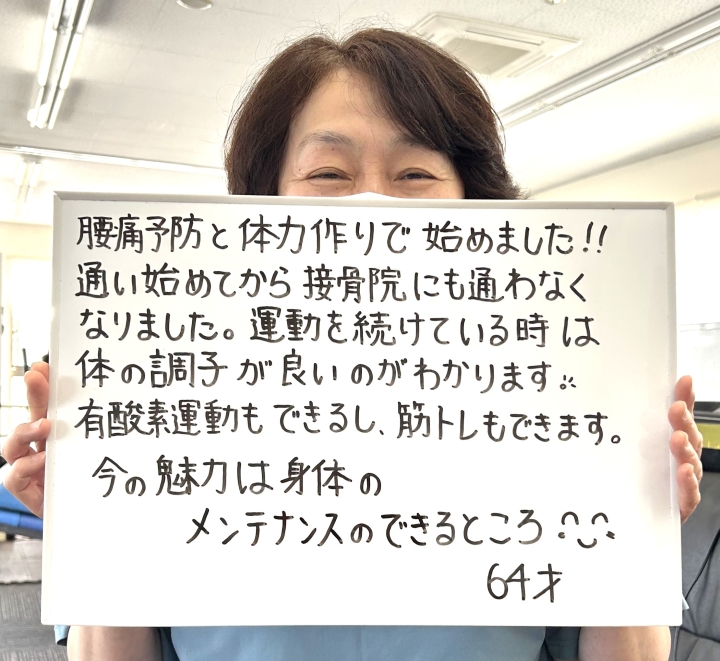 腰痛予防と体力作りで始めました!!
通い始めてから接骨院にも通わなく
なりました。運動を続けている時は
体の調子が良いのがわかります。
有酸素運動もできるし、筋トレもできます。
今の魅力は身体の
メンテナンスのできるところ
64才